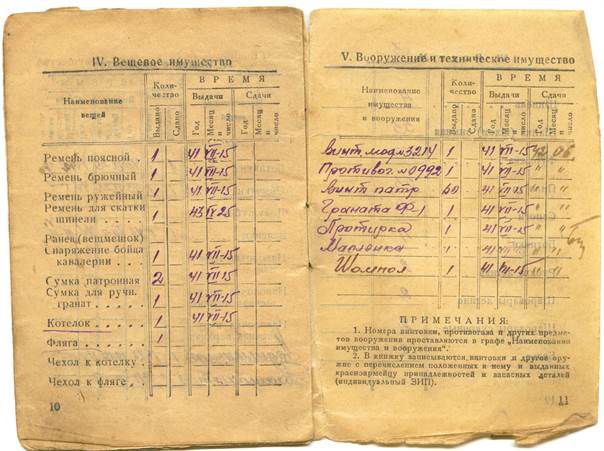 IV. Вещевое имущество
Наименование вещей
Коли-
чество
ВРЕМЯ
Выдачи
Сдачи
Выдано
Сдано
Год
Месяц и число
Год
Месяц и число
Ремень поясной . 1 41 VII-15
Ремень брючный 1 41 VII-15
Ремень ружейный 1 41 VII-15
Ремень для скатки
шинели . . 1 43 25
Ранец (вещмешок)
Снаряжение бойца
кавалерии . . . 1 41 VII-15
Сумка патронная 2 41 VII-15
Сумка для ручн.
гранат . . . . 1 41 VII-15
Котелок . . . . 1 41 VII-15
Фляга . . . . 1
Чехол к котелку .
Чехол к фляге . .
10
V. Вооружение и техническое имущество
Наименование
имущества
и вооружения
Коли-
чество
ВРЕМЯ
Выдачи
Сдачи
Выдано
Сдано
Год
Месяц и число
Год
Месяц и число
Винт 3214 1 41 VII-15 42 06
Противог. №0992 1 41 VII-15 " "
Винт патр 60 41 VII-15 " "
Граната Ф-1 1 41 VII-15 " "
Протирка 1 41 VII-15 " "
Масленка 1 41 VII-15 " "
Шомпол 1 41 VII-15 " "
ПРИМЕЧАНИЯ:
1. Номера винтовки, противогаза и других предме-
тов вооружения проставляются в графе „Наименование
имущества и вооружения".
2. В книжку записываются винтовки и другое ору-
жие с перечислением положенных к нему и выданных
красноармейцу принадлежностей и запасных деталей
(индивидуальный ЗИП).
11